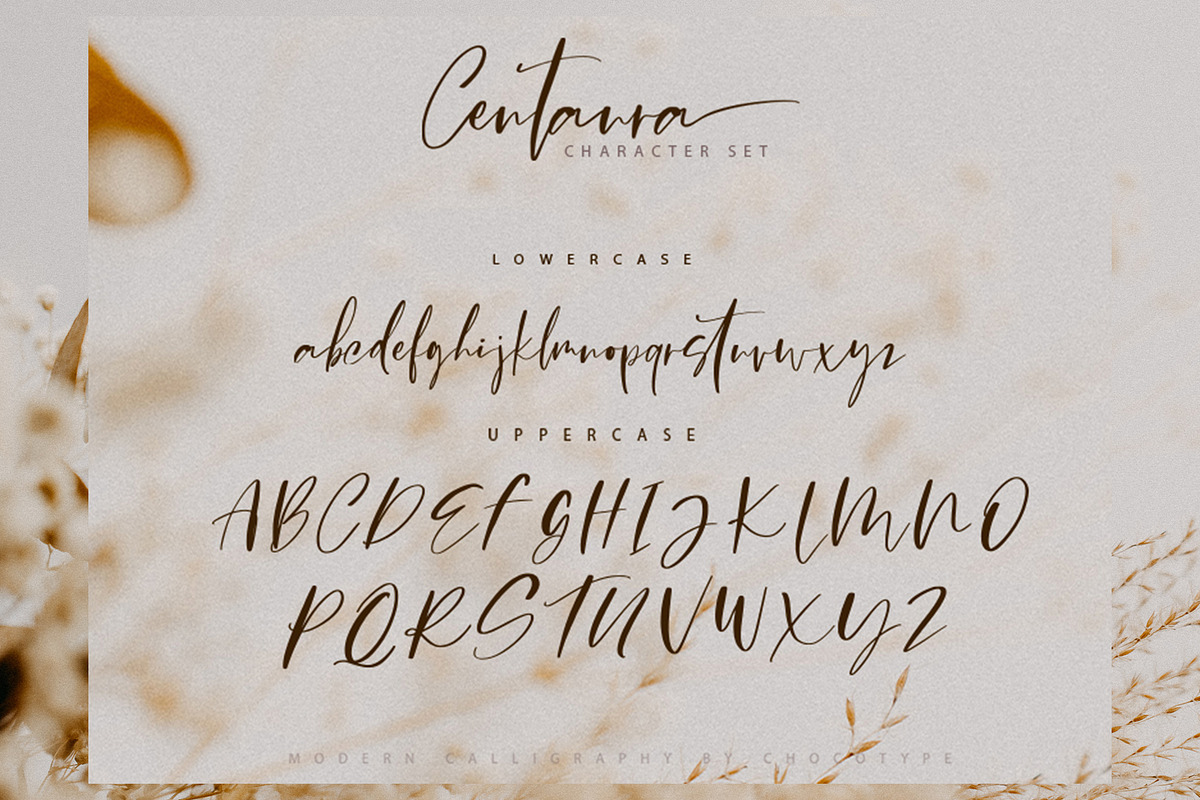 Centaura
CHARACTER SET
LOWERCASE
abcdefghijklmnopqrstuvwxyz
UPPERCASE
ABCDEFGHIJKLMNO
PQRSTUVWXYZ
MODERN CALLIGRAPHY BY CHOCOTYPE